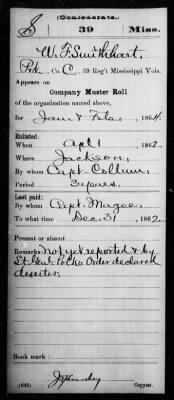 (Confederate.)
S 39 Miss.
W. F. Smithhart,
Pvt., Co. C, 39 Reg't Mississippi Vols.
Appears on
Company Muster Roll
of the organization named above,
for Jan & Feb, 1864.
Enlisted:
When Apl 1, 1862.
Where Jackson,
By whom Capt. Collum,
Period 3 years.
Last paid:
By whom Capt. Magee,
To what time Dec. 31, 1862.
Present or absent
Remarks: Not yet reported & by
Lt. Genl Polks Order declared
deserter
Book mark:
(642) Copyist.